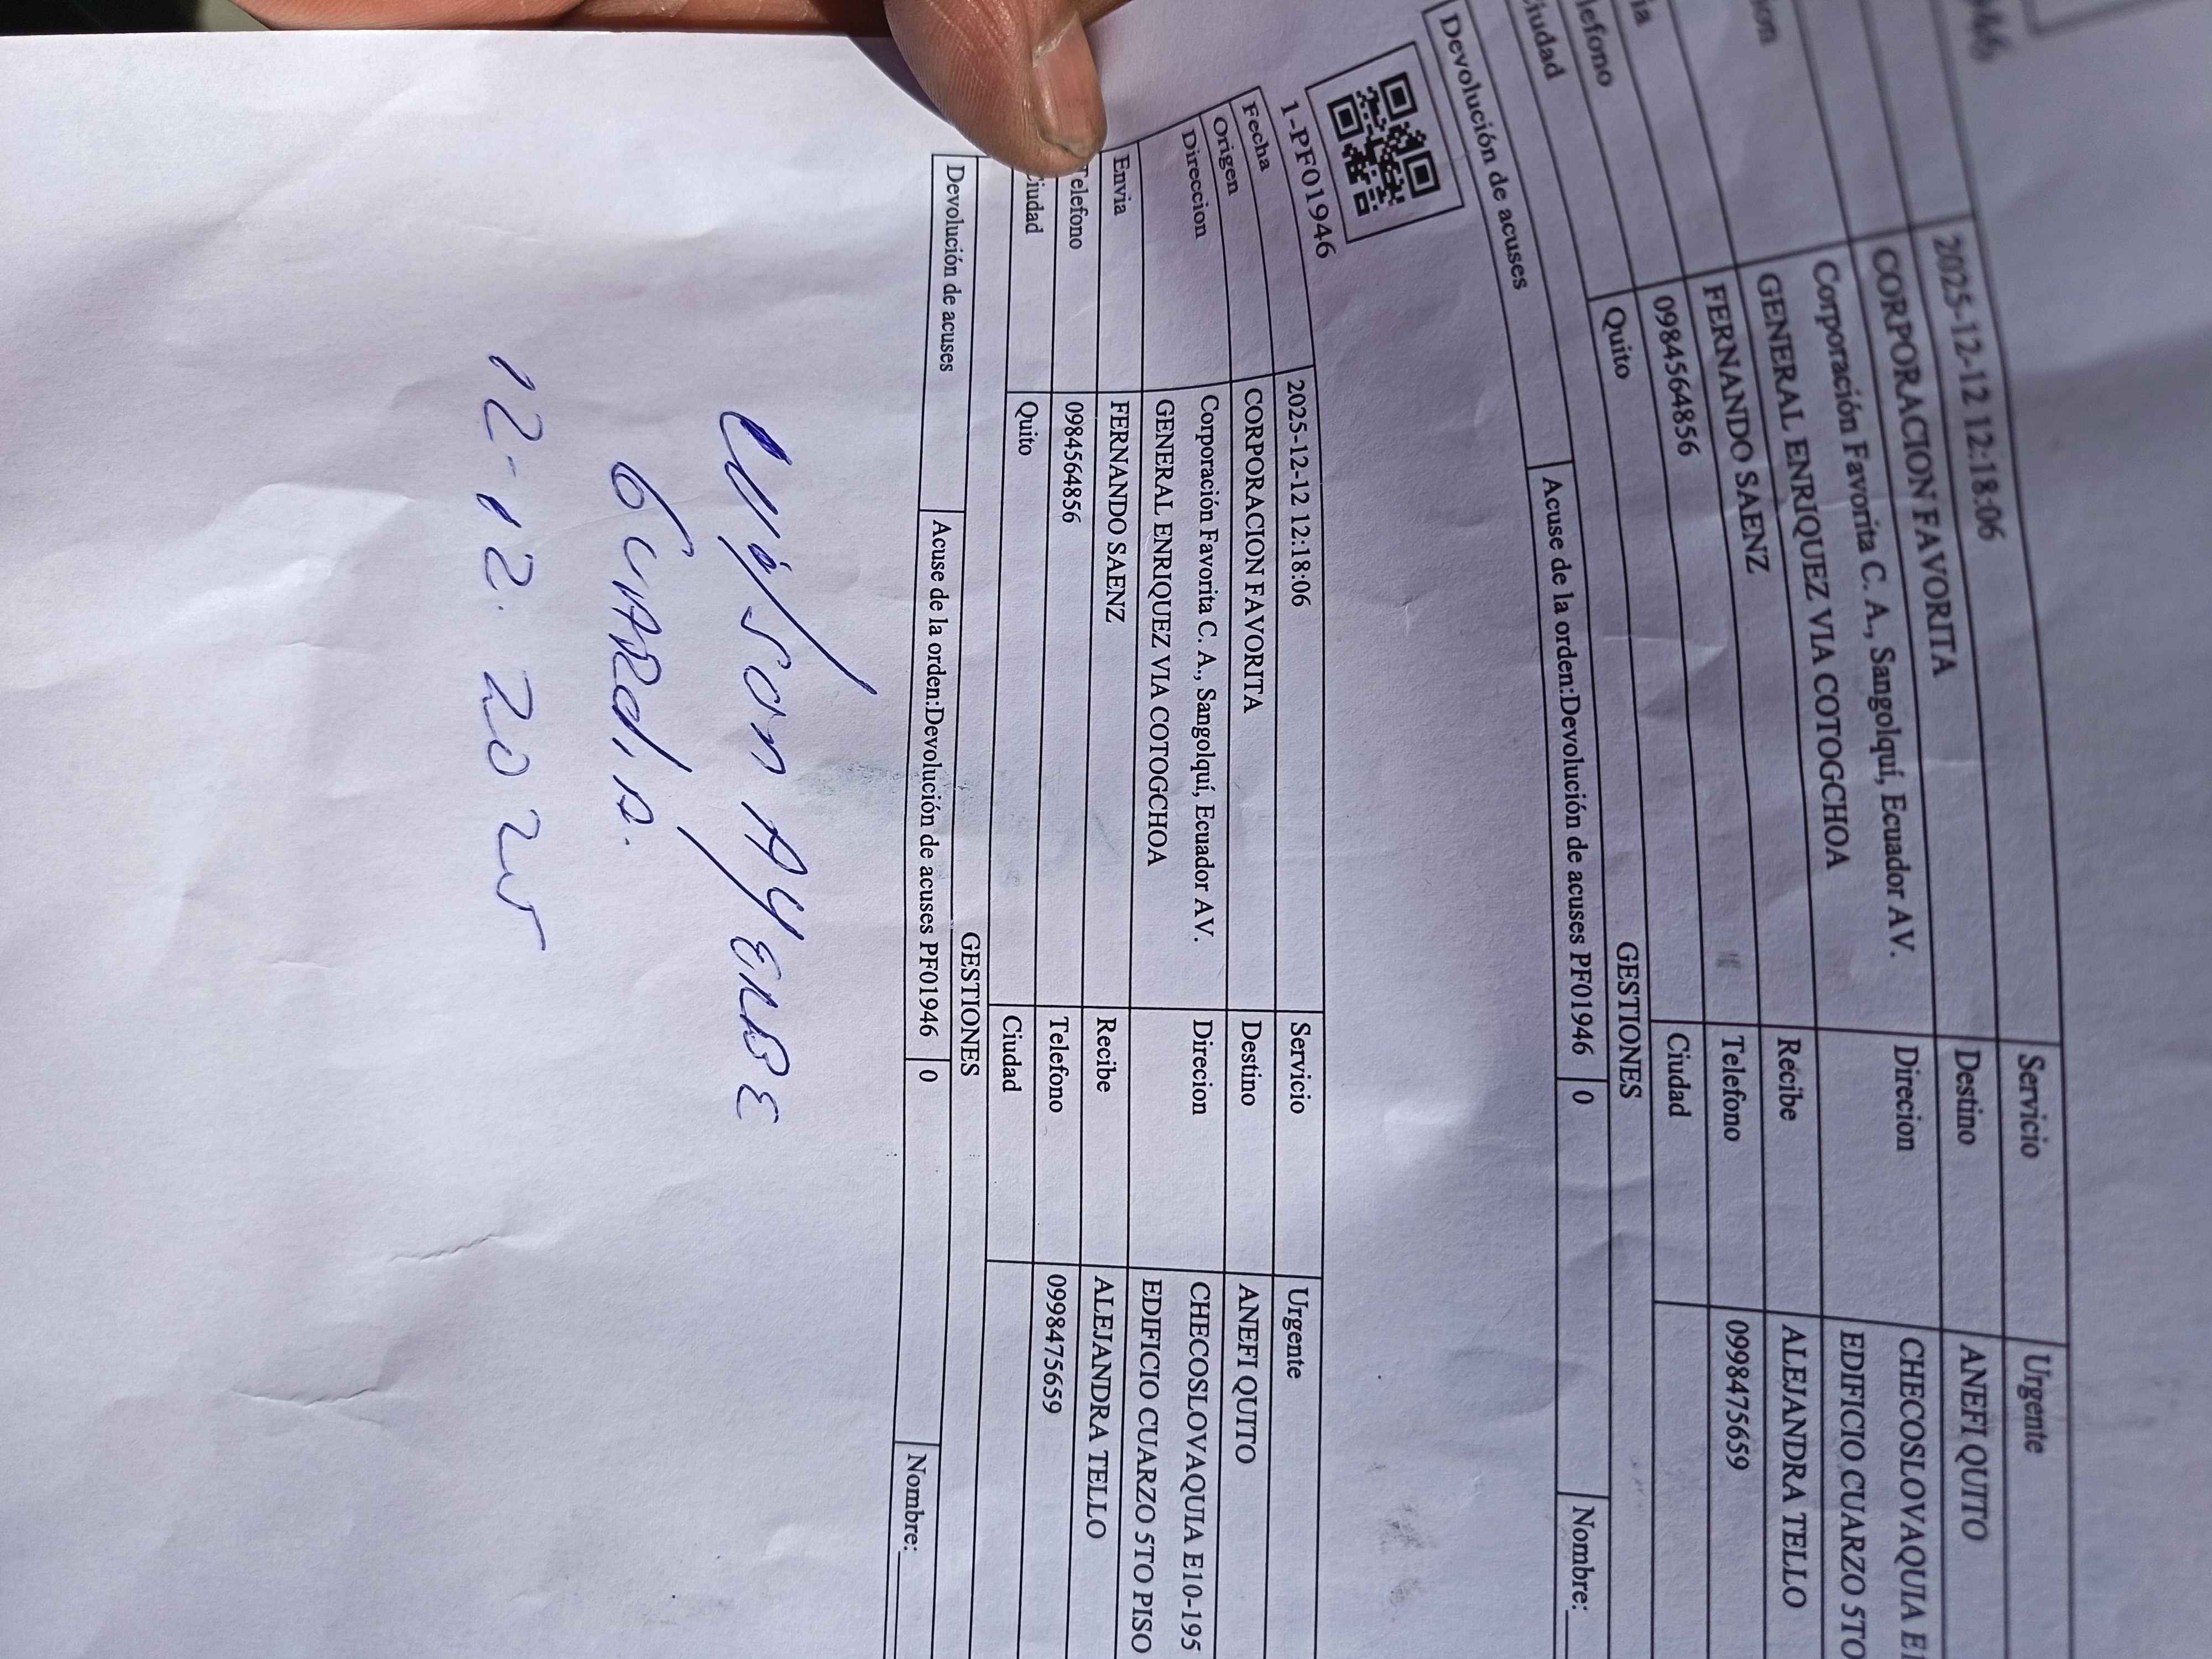 2025-12-12 12:18:06 Servicio Urgente
CORPORACION FAVORITA Destino ANEFI QUITO
Corporación Favorita C. A., Sangolquí, Ecuador AV. Direcion CHECOSLOVAQUIA
GENERAL ENRIQUEZ VIA COTOGCHOA EDIFICIO CUARZO 5TO
FERNANDO SAENZ Recibe ALEJANDRA TELLO
0984564856 Telefono 0998475659
Quito Ciudad
GESTIONES
Devolución de acuses Acuse de la orden:Devolución de acuses PF01946 0 Nombre:
1-PF01946
Fecha 2025-12-12 12:18:06 Servicio Urgente
Origen CORPORACION FAVORITA Destino ANEFI QUITO
Direccion Corporación Favorita C. A., Sangolquí, Ecuador AV. Direcion CHECOSLOVAQUIA E10-195
GENERAL ENRIQUEZ VIA COTOGCHOA EDIFICIO CUARZO 5TO PISO
Envia FERNANDO SAENZ Recibe ALEJANDRA TELLO
Telefono 0984564856 Telefono 0998475659
Ciudad Quito Ciudad
GESTIONES
Devolución de acuses Acuse de la orden:Devolución de acuses PF01946 0 Nombre:
GUARdiA.
12-12. 2025